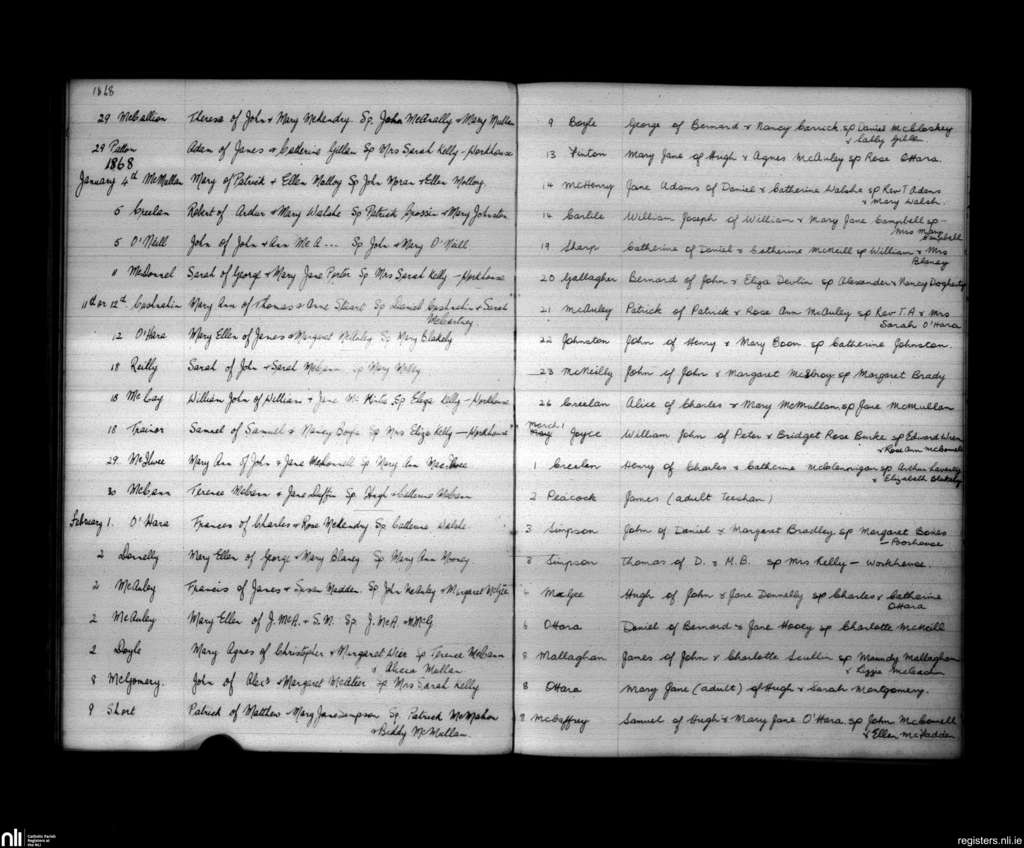 1868
29 McCallion Theresa of John & Mary McKendry. Sp. John McAnally & Mary Mullan
29 Patton Adam of James & Catherine Gillan Sp Mrs Sarah Kelly - Workhouse
1868
January 4th McMullan Mary of Patrick & Ellen Molloy Sp John Moran & Ellen Molloy.
5 Creelan Robert of Arthur & Mary Walshe Sp Patrick Crossin & Mary Johnston
5 O'Neill John of John & Ann McA... Sp John & Mary O'Neill
11 McDonnel Sarah of George & Mary Jane Porter Sp Mrs Sarah Kelly - Workhouse
11th or 12th Cushnahin Mary Ann of Thomas & Anne Stuart Sp Daniel Cushnahin & Sarah
McCartney
12 O'Hara Mary Ellen of James & Margaret McAuley Sp Mary Blakely
18 Reilly Sarah of John & Sarah McCann Sp Mary Reilly
18 William John of William & Jane Sp Eliza Kelly - Workhouse
18 Trainor Samuel of Samuel & Nancy Boyle Sp Mrs Eliza Kelly - Workhouse
29. McIlwee Mary Ann of John & Jane McConnell Sp Mary Ann MacIlwee
30 McCann Terence McCann & Jane Duffin Sp. Hugh & Catherine McCann
February 1. O'Hara Frances of Charles & Rose McKendry Sp Catherine Walshe
2 Donnelly Mary Ellen of George & Mary Blaney Sp Mary Ann Mooney
2 McAuley Francis of James & Susan Madden. Sp John McAuley & Margaret McGee
2 McAuley Mary Ellen of J. McA. & S. M. Sp. J. McA & M McG
2 Doyle Mary Agnes of Christopher & Margaret Weir Sp Terence McCann
& Alicia Mullan
8 McGomery. John of Alexr & Margaret McAteer Sp Mrs Sarah Kelly
9 Short Patrick of Matthew & Mary Jane Simpson Sp Patrick McMahon
& Biddy McMullan.
9 Boyle George of Bernard & Nancy Carrick sp Daniel McCloskey
& Cathy Gillen
13 Finton Mary Jane of Hugh & Agnes McAuley sp Rose O'Hara.
14 McHenry Jane Adams of Daniel & Catherine Walshe sp Rev T Adens
& Mary Walsh.
14 Carlile William Joseph of William & Mary Jane Campbell sp -
Mrs Mary
Campbell
19 Sharp Catherine of Daniel & Catherine McNeill sp William & Mrs
Blaney
20 Gallagher Bernard of John & Eliza Devlin sp Alexander & Nancy Dogherty
21 McAuley Patrick of Patrick & Rose Ann McAuley sp Rev T.A & Mrs
Sarah O'Hara
22 Johnston John of Henry & Mary Coon sp Catherine Johnston.
23 McNeilly John of John & Margaret McElroy sp Margaret Brady
26 Creelan Alice of Charles & Mary McMullan sp Jane McMullan
March 1
Joyce William John of Peter & Bridget Rose Burke sp Edward Wren
& Rose Ann McConnell
1 Creelan Henry of Charles & Catherine McClennigan sp Arthur Laverty
& Elizabeth Blakely
2 Peacock James (adult Teeshan)
3 Simpson John of Daniel & Margaret Bradley sp Margaret Bones
- Poorhouse
3 Simpson Thomas of D. & M.B. sp Mrs Kelly - Workhouse.
6 McGee Hugh of John & Jane Donnelly sp Charles & Catherine
O'Hara
6 O'Hara Daniel of Bernard & Jane Hooey sp Charlotte McNeill
8 Mallaghan James of John & Charlotte Scullin sp Maundy Mallaghan
& Lizzie
8 O'Hara Mary Jane (adult) of Hugh & Sarah Montgomery.
8 McCaffrey Samuel of Hugh & Mary Jane O'Hara sp John McConnell
& Ellen McFadden
nli
Catholic Parish
Registers at
the NLI
registers.nli.ie